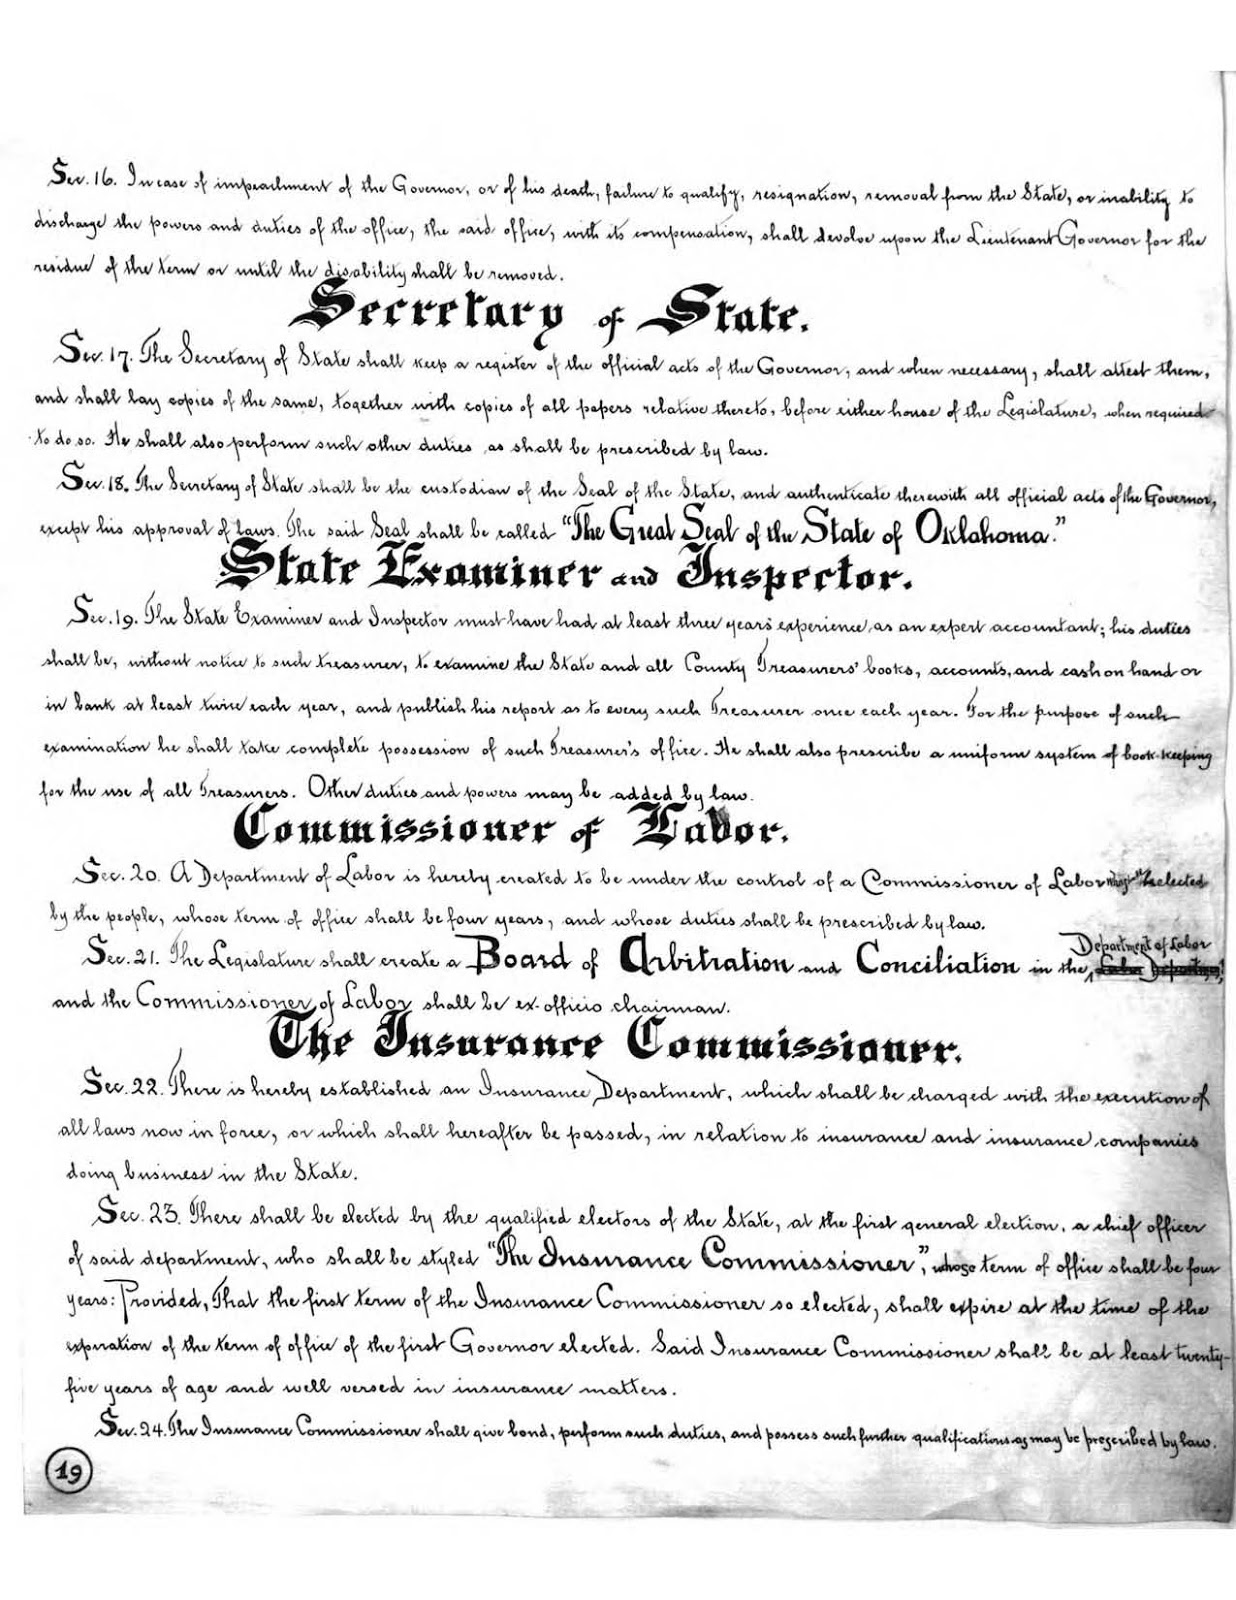 Sec. 16. In case of impeachment of the Governor, or of his death, failure to qualify, resignation, removal from the State, or inability to
discharge the powers and duties of the office, the said office, with its compensation, shall devolve upon the Lieutenant Governor for the
residue of the term or until the disability shall be removed.
Secretary of State.
Sec. 17. The Secretary of State shall keep a register of the official acts of the Governor, and when necessary, shall attest them,
and shall lay copies of the same, together with copies of all papers relative thereto, before either house of the Legislature, when required
to do so. He shall also perform such other duties as shall be prescribed by law.
Sec. 18. The Secretary of State shall be the custodian of the Seal of the State, and authenticate therewith all official acts of the Governor,
except his approval of laws. The said Seal shall be called "The Great Seal of the State of Oklahoma."
State Examiner and Inspector.
Sec. 19. The State Examiner and Inspector must have had at least three years' experience as an expert accountant; his duties
shall be, without notice to such treasurer, to examine the State and all County Treasurers' books, accounts, and cash on hand or
in bank at least twice each year, and publish his report as to every such Treasurer once each year. For the purpose of such
examination he shall take complete possession of such Treasurer's office. He shall also prescribe a uniform system of book-keeping
for the use of all Treasurers. Other duties and powers may be added by law.
Commissioner of Labor.
Sec. 20. A Department of Labor is hereby created to be under the control of a Commissioner of Labor elected
by the people, whose term of office shall be four years, and whose duties shall be prescribed by law.
Department of Labor
Sec. 21. The Legislature shall create a Board of Arbitration and Conciliation in the Labor Department
and the Commissioner of Labor shall be ex-officio chairman.
The Insurance Commissioner.
Sec. 22. There is hereby established an Insurance Department, which shall be charged with the execution of
all laws now in force, or which shall hereafter be passed, in relation to insurance and insurance companies
doing business in the State.
Sec. 23. There shall be elected by the qualified electors of the State, at the first general election, a chief officer
of said department, who shall be styled "The Insurance Commissioner", whose term of office shall be four
years: Provided, That the first term of the Insurance Commissioner so elected, shall expire at the time of the
expiration of the term of office of the first Governor elected. Said Insurance Commissioner shall be at least twenty-
five years of age and well versed in insurance matters.
Sec. 24. The Insurance Commissioner shall give bond, perform such duties, and possess such further qualifications as may be prescribed by law.
19